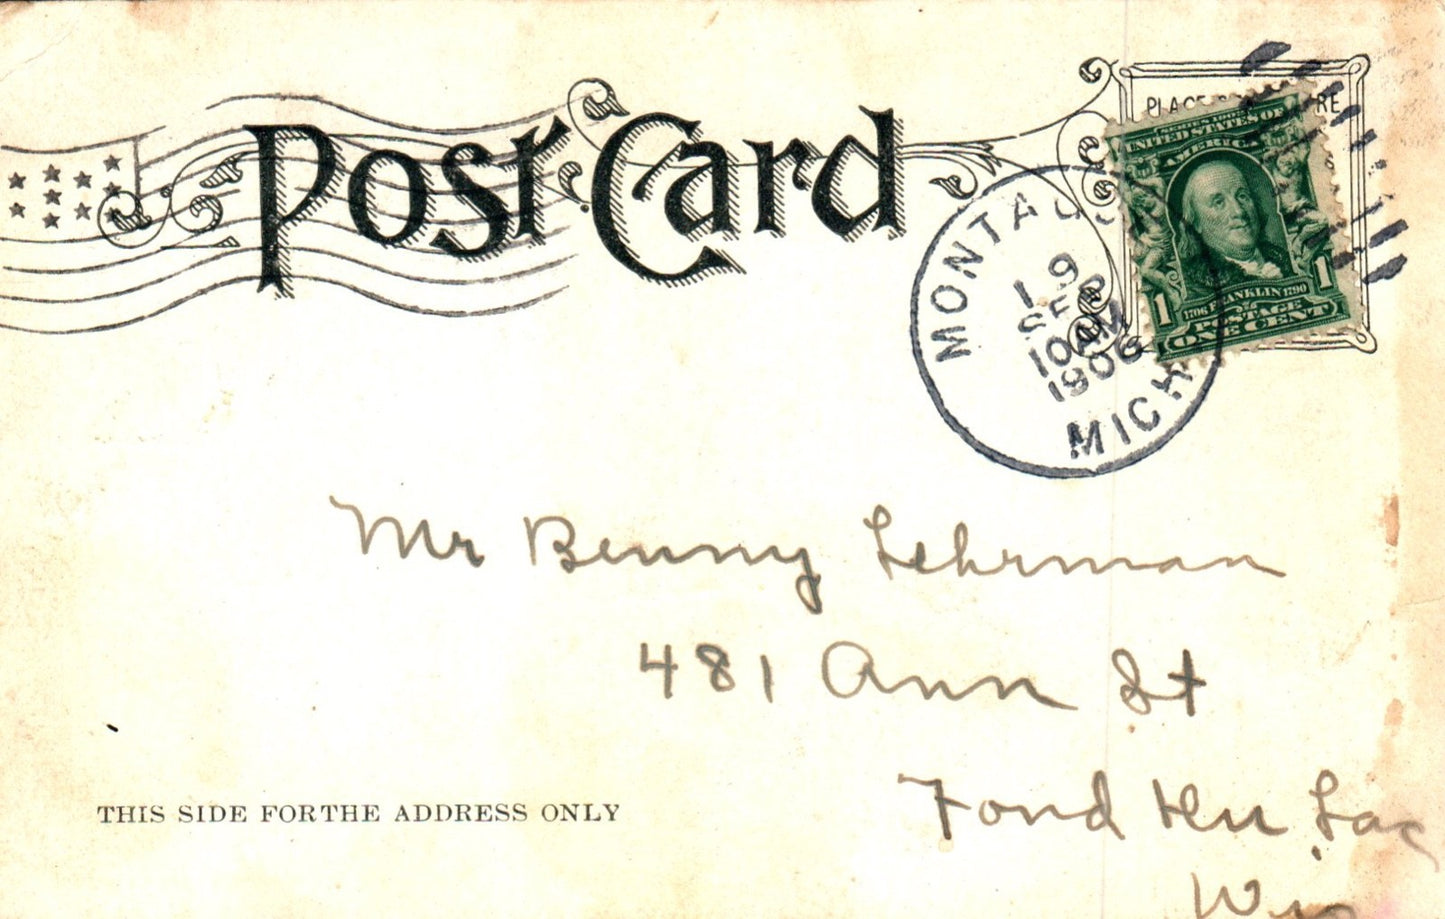 Post Card
PLACE RE
MONTAGUE
19
SEP
10 AM
1906
MICH
SERIES 1902
UNITED STATES OF
AMERICA
1706 FRANKLIN 1790
1 1
POSTAGE
ONE CENT
Mr Benny Lehrman
481 Ann St
Fond du Lac
Wis
THIS SIDE FOR THE ADDRESS ONLY